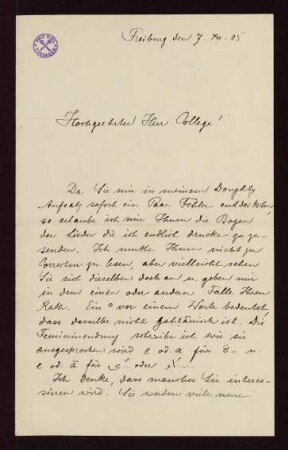 Freiburg den 7. XII. 05
Hochgeehrter Herr College!
Da Sie mir in meinem Doughty
Aufsatz sofort ein Paar Fehler
so erlaube ich mir Ihnen die Bogen
der Lieder die ich endlich drucke zu zu
senden. Ich muthe Ihnen nicht zu
Correctur zu lesen, aber vielleicht sehen
Sie sich dieselben doch an u. geben mir
in dem einen oder andern Falle Ihren
Rath. Ein ° vor einem Worte bedeutet
dass dasselbe nicht ist. Die
Femininendung schreibe ich wie sie
ausgesprochen wird e od. a für
e od. ä für oder
Ich denke, dass manches Sie interes-
sieren wird. Sie werden viele neue